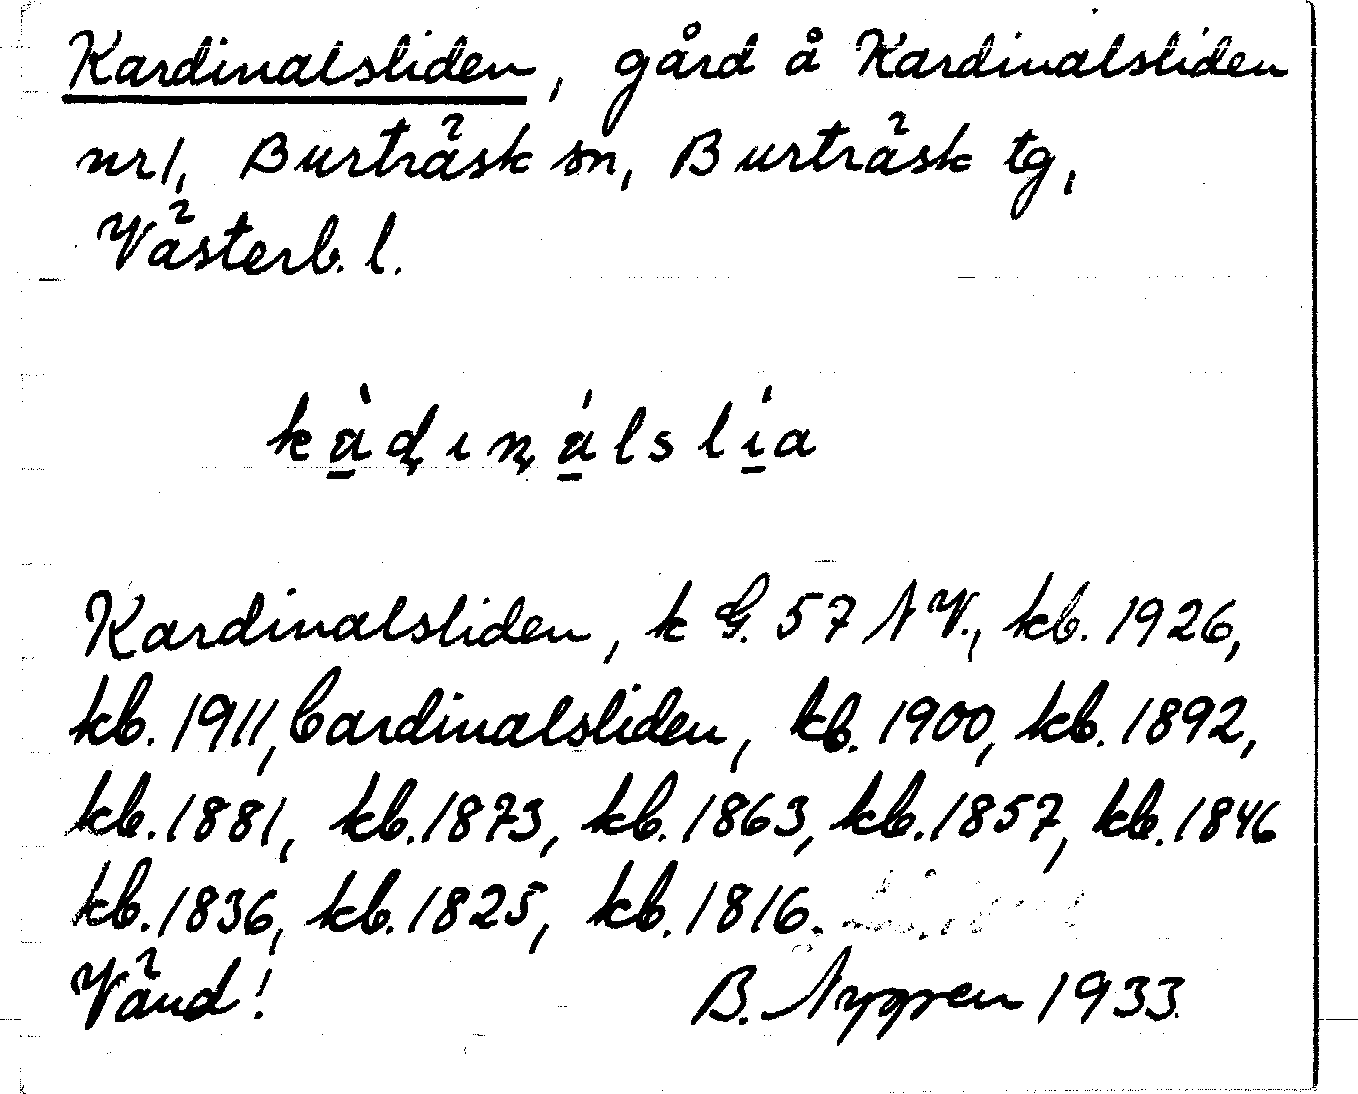 Kardinalsliden, gård å Kardinalsliden
nr 1, Burträsk sn, Burträsk tg,
Västerb. l.
kàḍınálslía
Kardinalsliden, k G. 57 NV., kb. 1926,
kb. 1911, Cardinalsliden, kb. 1900, kb. 1892,
kb. 1881, kb. 1873, kb. 1863, kb. 1857, kb. 1846
kb. 1836, kb. 1825, kb. 1816.
Vänd! B. Nygren 1933.